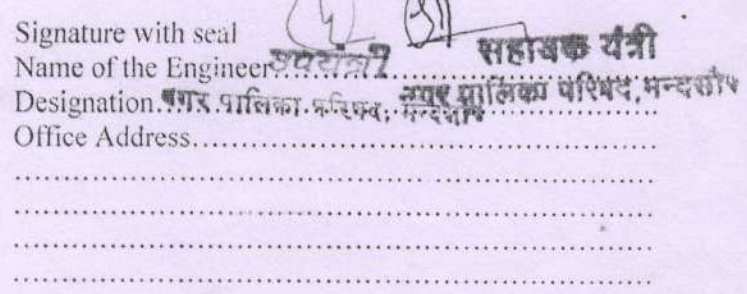 Signature with seal
Name of the Engineer उपयंत्री सहायक यंत्री
Designation नगर पालिका परिषद, मन्दसौर नगर पालिका परिषद, मन्दसौर
Office Address